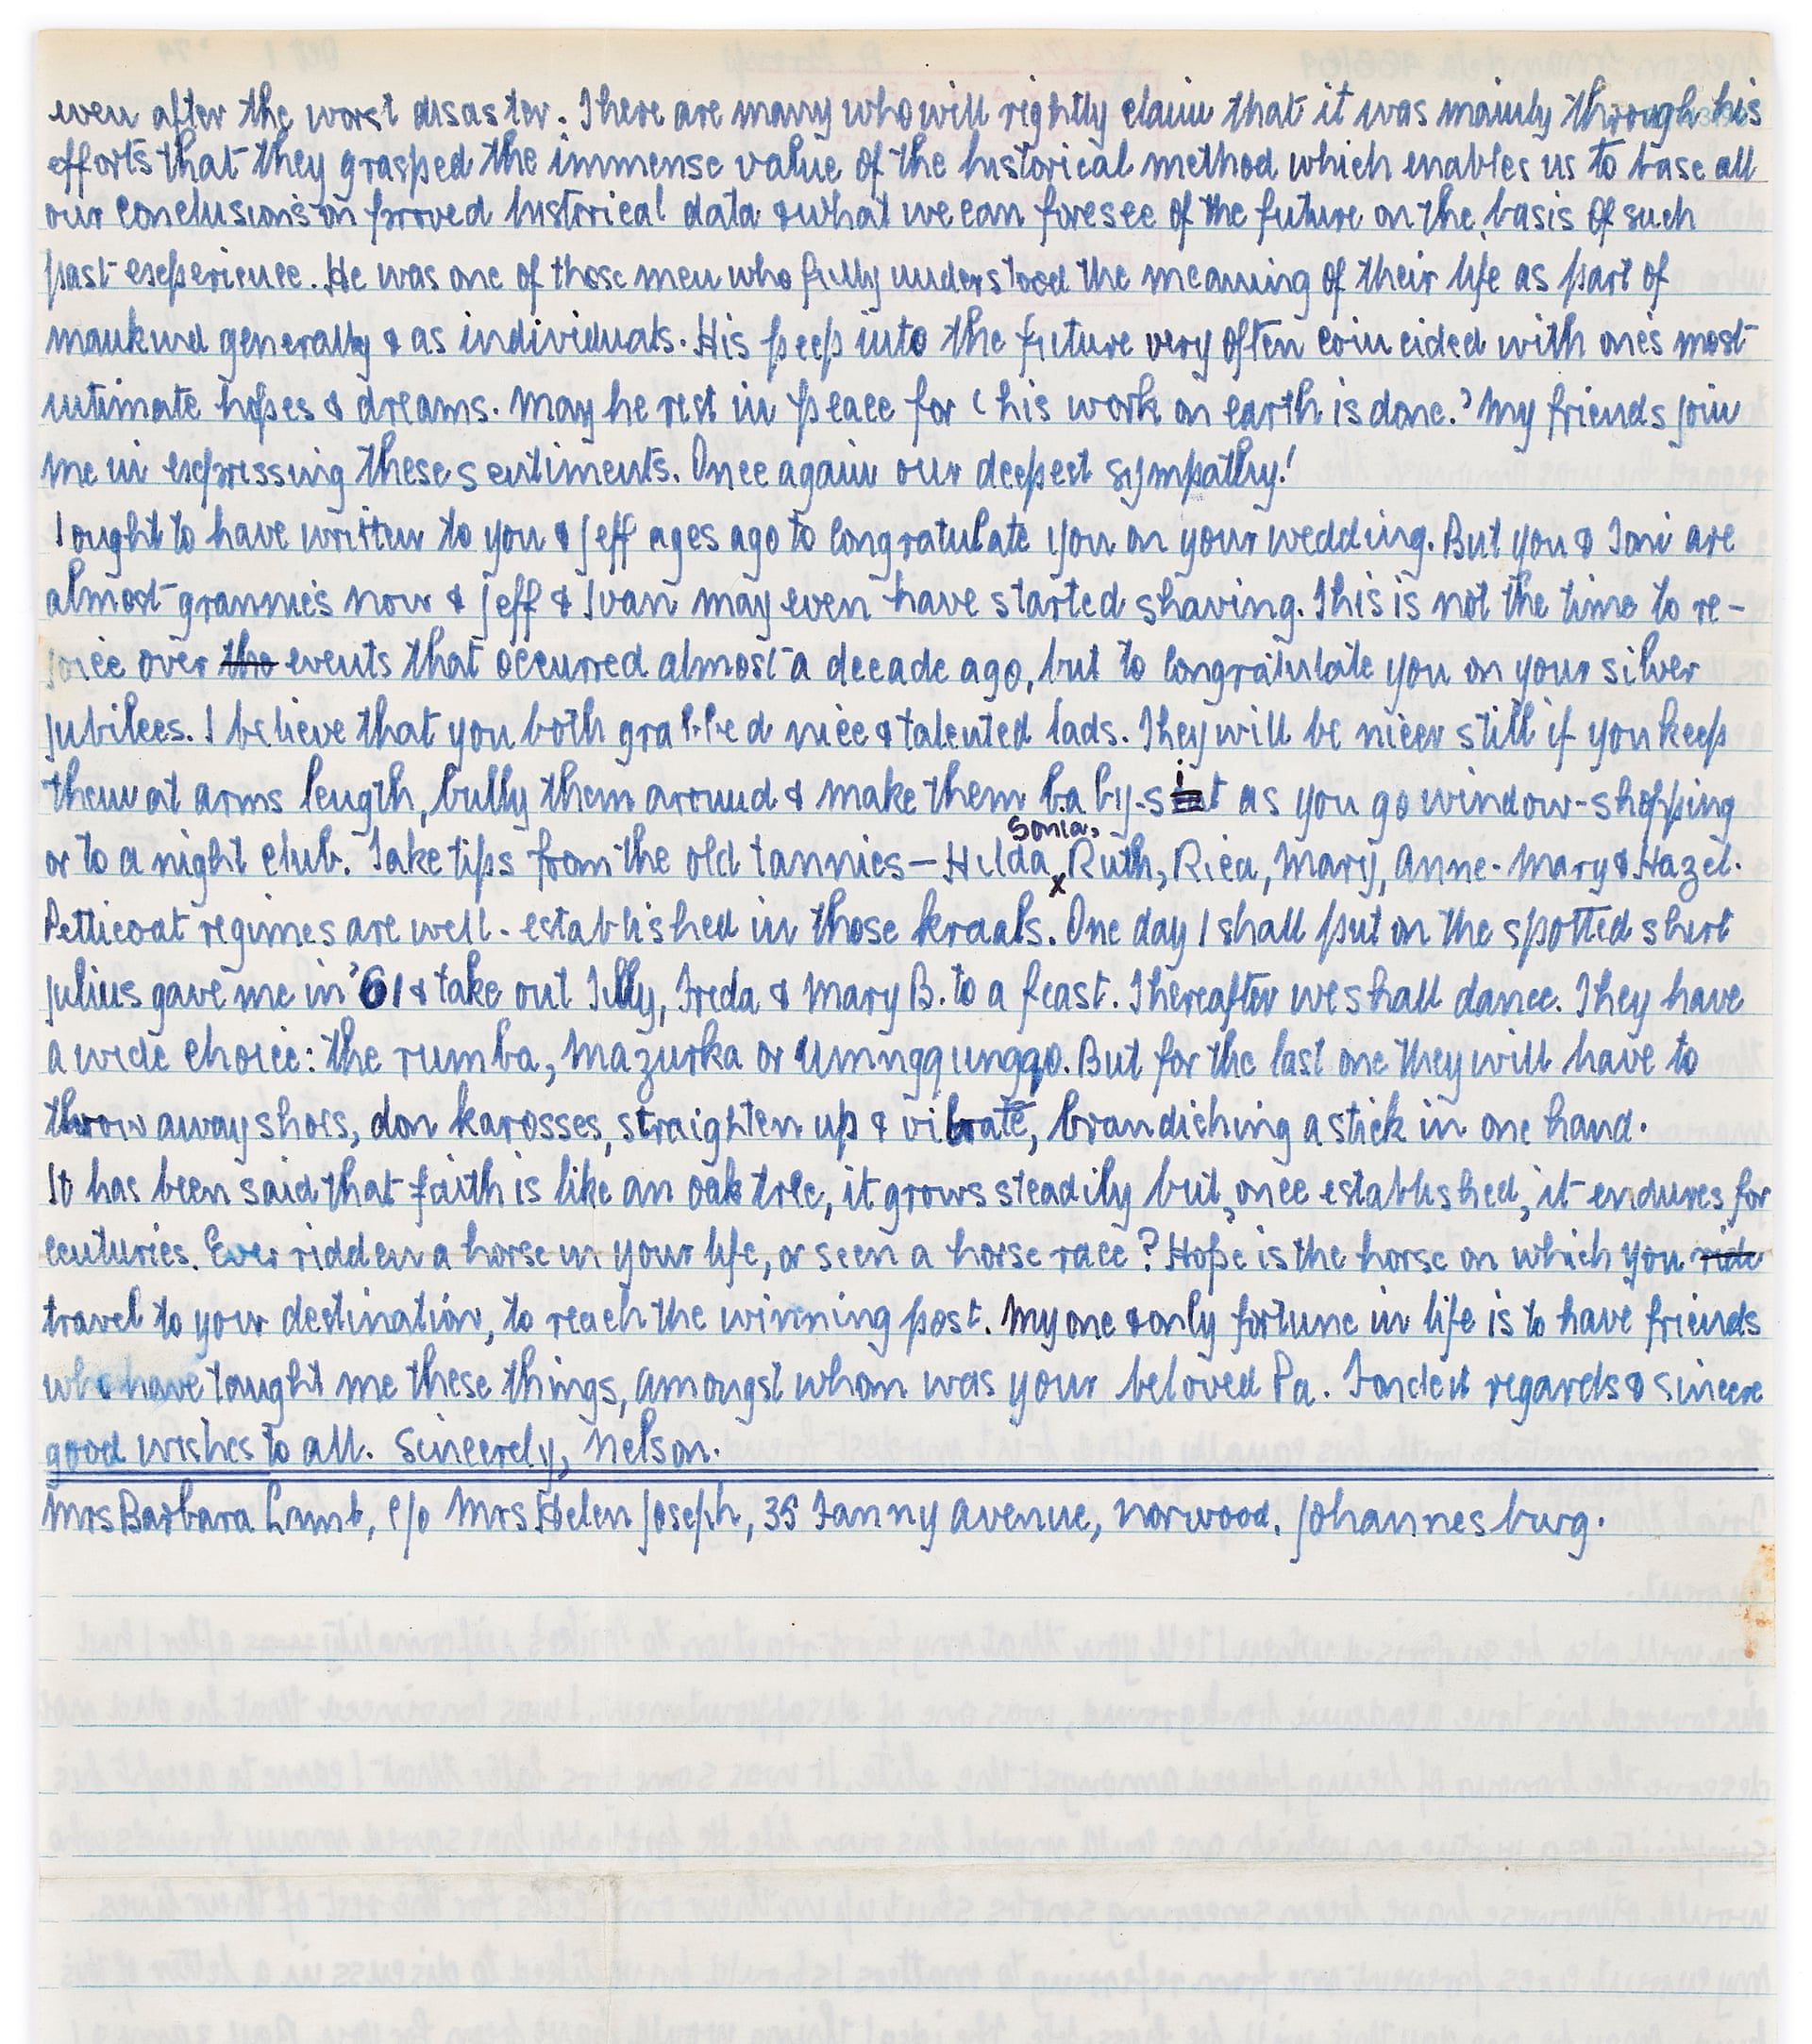 even after the worst disaster. There are many who will rightly claim that it was mainly through his
efforts that they grasped the immense value of the historical method which enables us to base all
our conclusions on proved historical data & what we can foresee of the future on the basis of such
past experience. He was one of those men who fully understood the meaning of their life as part of
mankind generally & as individuals. His peep into the future very often coincided with one's most
intimate hopes & dreams. May he rest in peace for 'his work on earth is done.' My friends join
me in expressing these sentiments. Once again our deepest sympathy!
I ought to have written to you & Jeff ages ago to congratulate you on your wedding. But you & Toni are
almost grannies now & Jeff & Ivan may even have started shaving. This is not the time to re-
joice over the events that occurred almost a decade ago, but to congratulate you on your silver
jubilees. I believe that you both grabbed nice & talented lads. They will be nicer still if you keep
them at arms length, bully them around & make them baby-sit as you go window-shopping
or to a night club. Take tips from the old tannies — Hilda, Sonia, Ruth, Rica, Mary, Anne-Mary & Hazel.
Petticoat regimes are well-established in those kraals. One day I shall put on the spotted shirt
Julius gave me in '61 & take out Tilly, Freda & Mary B. to a feast. Thereafter we shall dance. They have
a wide choice: the rumba, mazurka or umngqungqo. But for the last one they will have to
throw away shoes, don karosses, straighten up & vibrate, brandiching a stick in one hand.
It has been said that faith is like an oak tree, it grows steadily but, once established, it endures for
centuries. Ever ridden a horse in your life, or seen a horse race? Hope is the horse on which you ride
travel to your destination, to reach the winning post. My one & only fortune in life is to have friends
who have taught me these things, amongst whom was your beloved Pa. Fondest regards & sincere
good wishes to all. Sincerely, Nelson.
Mrs Barbara Lamb, c/o Mrs Helen Joseph, 35 Fanny Avenue, Norwood. Johannesburg.